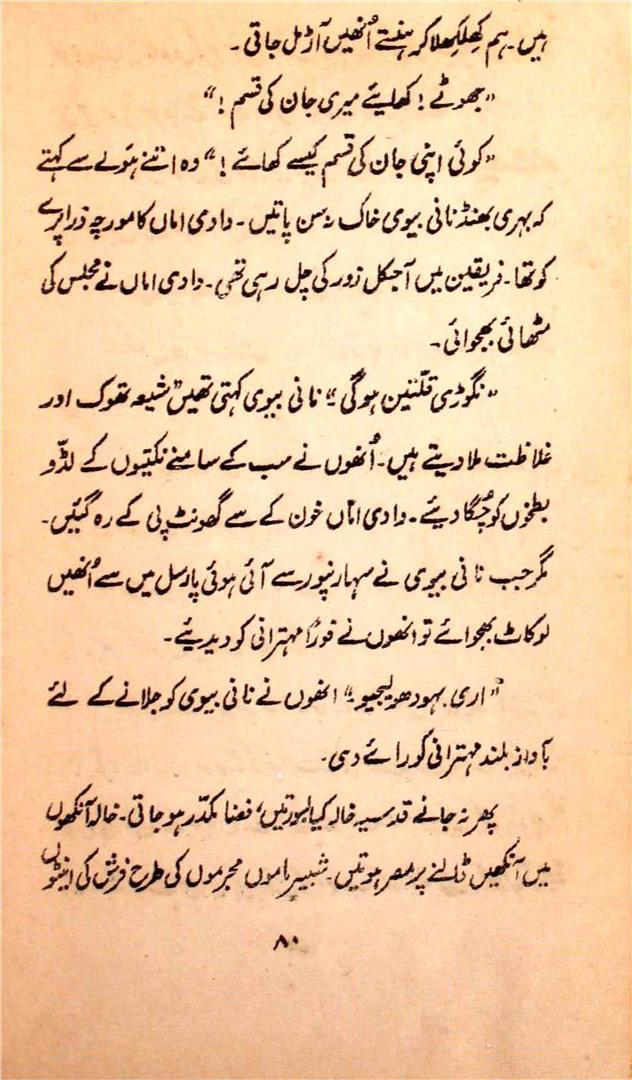 ہیں۔ ہم کھلکھلا کر ہنستے اُنھیں آڑ مل جاتی۔
"جھوٹے! کھائیے میری جان کی قسم!"
"کوئی اپنی جان کی قسم کیسے کھائے!" وہ اتنے ہَولے سے کہتے
کہ بہری بھنڈ نانی بیوی خاک نہ سن پاتیں۔ دادی اماں کا مورچہ ذرا پرے
کو تھا۔ فریقین میں آجکل زور کی چل رہی تھی۔ دادی اماں نے مجلس کی
مٹھائی بھجوائی۔
"نگوڑی قلّتین ہوگی" نانی بیوی کہتی تھیں "شیعہ تھوک اور
غلاظت ملا دیتے ہیں۔ اُنھوں نے سب کے سامنے نکتیوں کے لڈّو
بطخوں کو چُگا دیئے۔ دادی امّاں خون کے سے گھونٹ پی کے رہ گئیں۔
مگر جب نانی بیوی نے سہارنپور سے آئی ہوئی پارسل میں سے اُنھیں
لوکاٹ بھجوائے تو انھوں نے فوراً مہترانی کو دیدیئے۔
"اری بہو دھو لیجیو۔" انھوں نے نانی بیوی کو جلانے کے لئے
بآواز بلند مہترانی کو رائے دی۔
پھر نہ جانے قدسیہ خالہ کیا بسورتیں، فضا مکدّر ہو جاتی۔ خالہ آنکھوں
میں آنکھیں ڈالنے پر مصر ہوتیں۔ شبیر ماموں مجرموں کی طرح فرش کی اینٹوں
۸۰